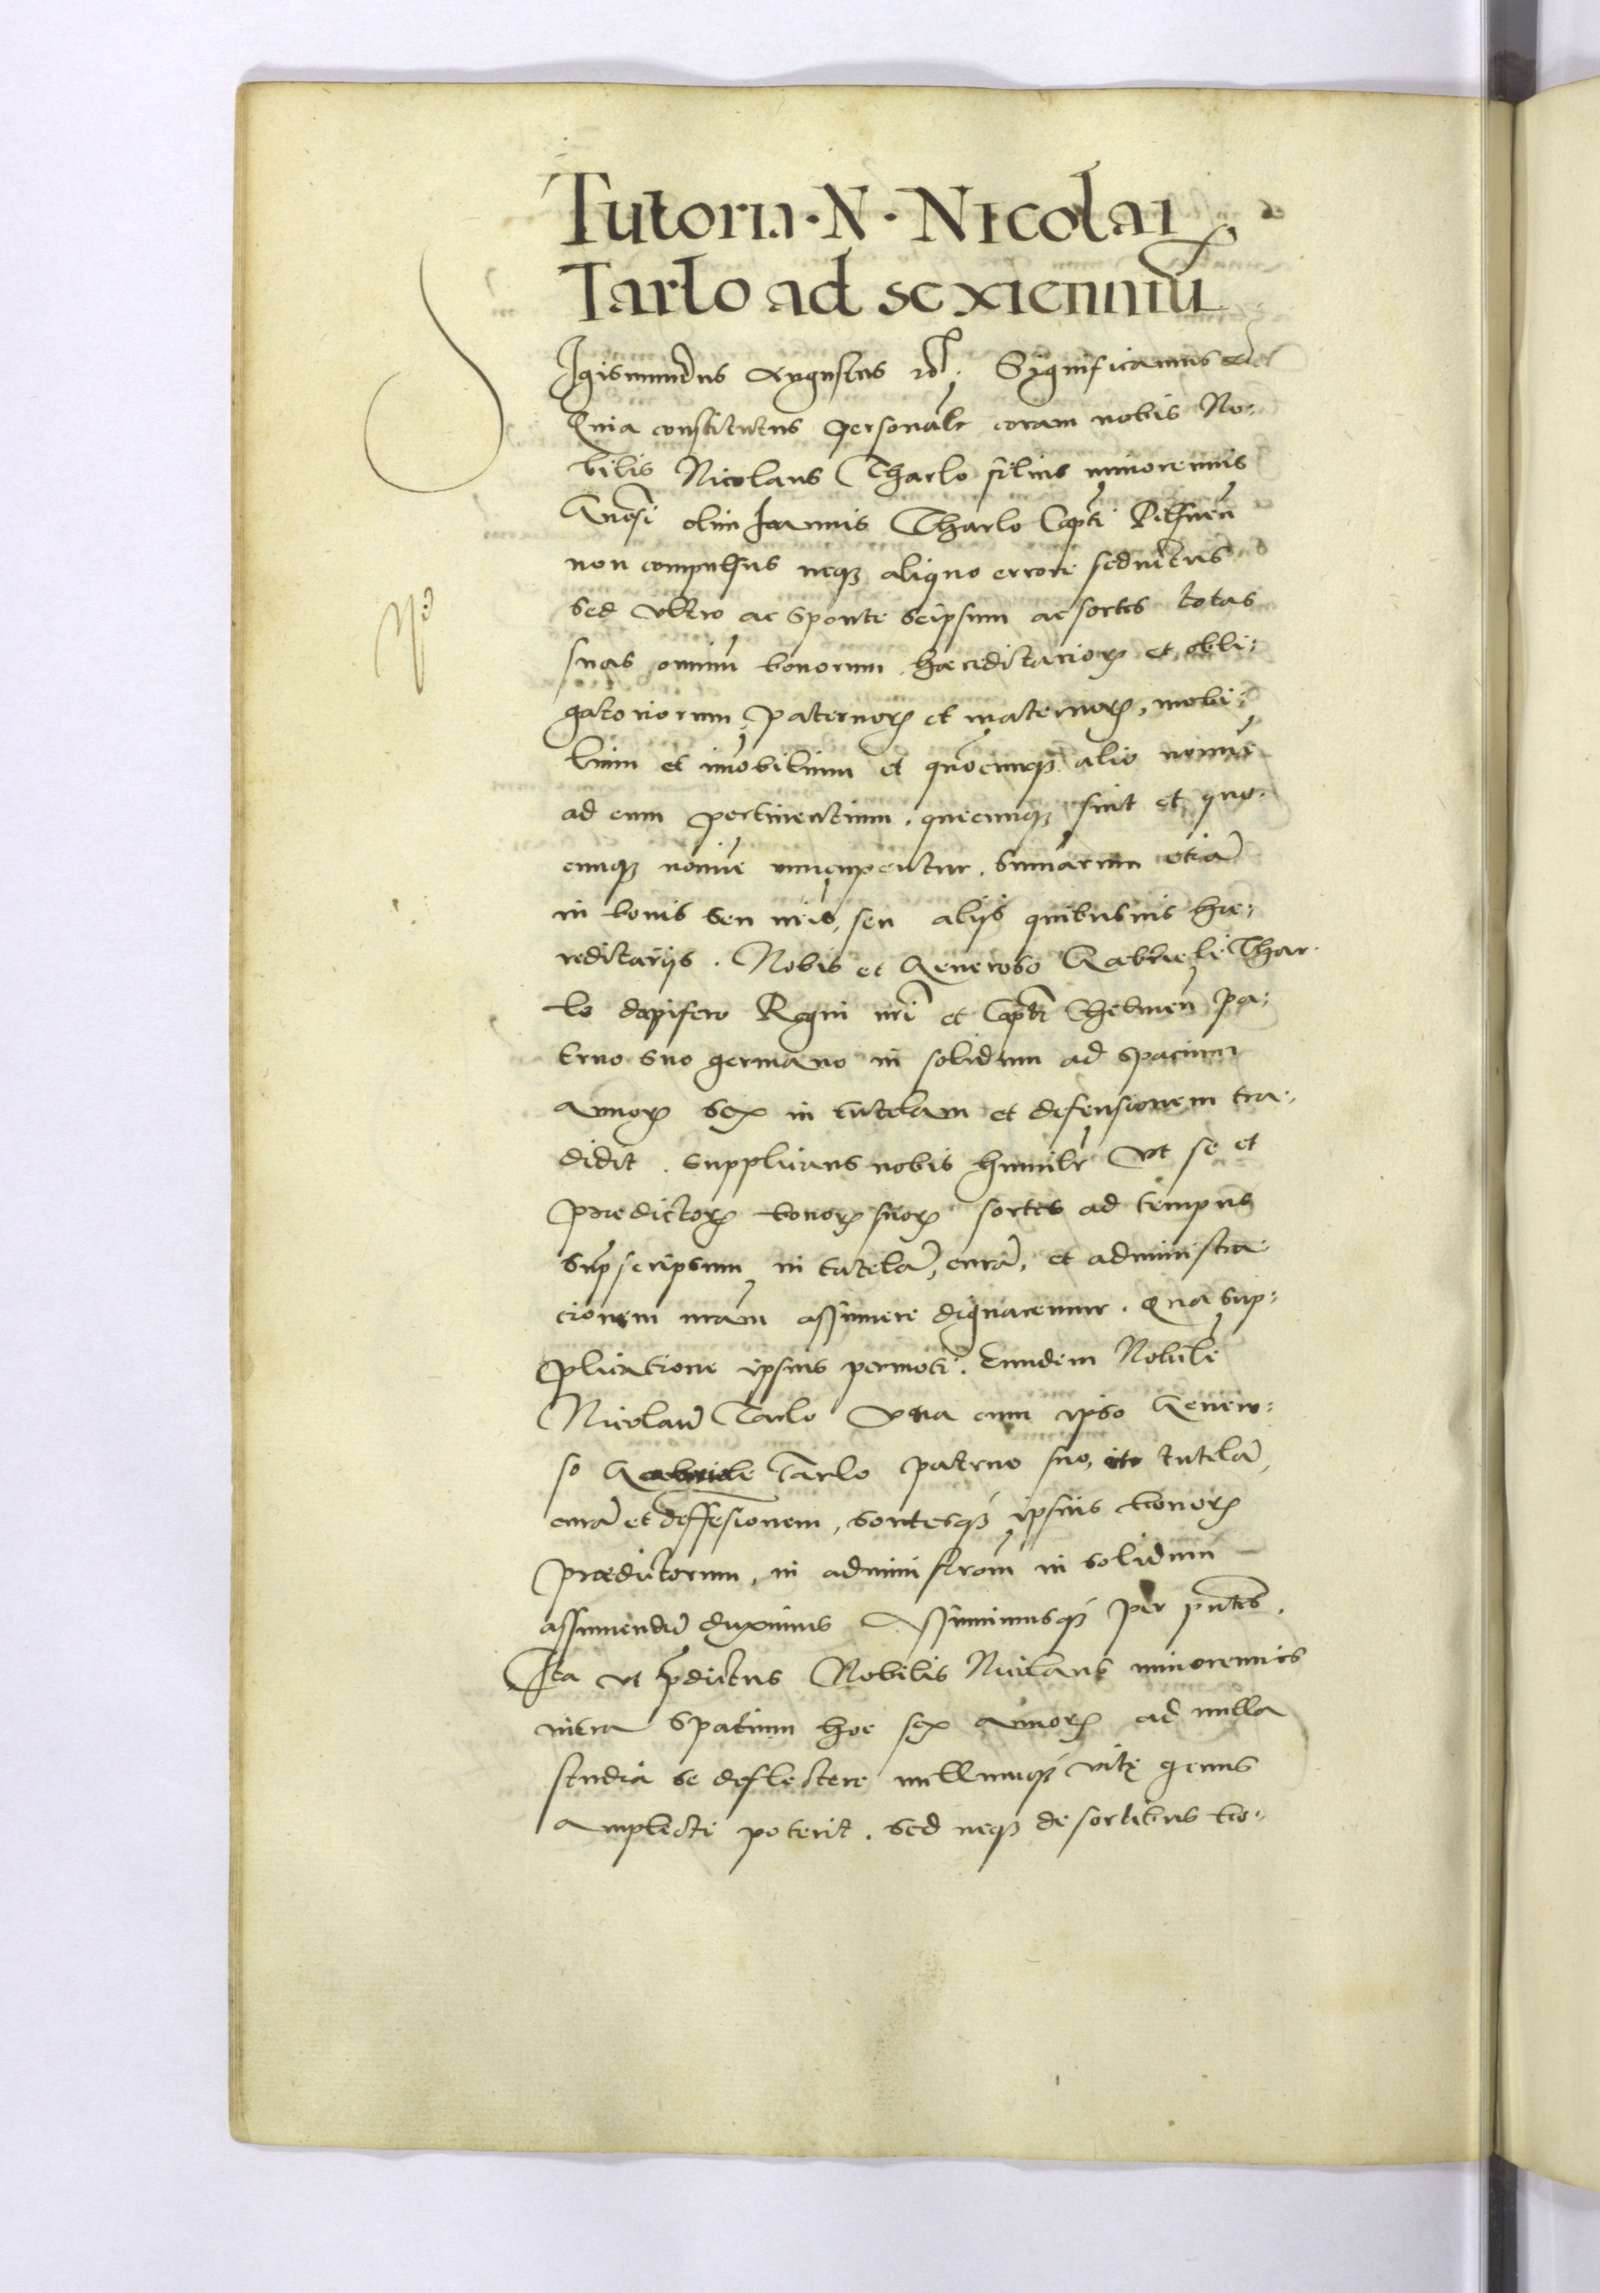 Tutoria · N · Nicolai
Tarlo ad sexienniū
Sigismundus Augustus etc. Significamus etc
Quia constitutus personalr coram nobis No-
bilis Nicolaus Tharlo filius minorennis
Gnosi olim Joannis Tharlo Capti Pilsnen
non compulsus neq; aliquo errore seductus
sed ultro ac sponte seipsum ac sortes totas
suas omniū bonorum hæreditarior; et obli-
gatoriorum, paternor; et maternor;, mobi-
lium et imobilium et quocunq; alio nomine
ad eum pertinentium, quecunq; sint et quo-
cunq; nomine nuncupentur, sumarum etiā
in bonis seu nris, seu alijs quibusuis hæ-
reditarijs. Nobis et Generoso Gabrieli Thar-
lo dapifero Regni nri et Capti Chelmen pa-
truo suo germano in solidum ad spacium
annor; sex in tutelam et defensionem tra-
didit, supplicans nobis humilr Ut se et
prædictor; bonor; suor; sortes ad tempus
supscriptum in tutelā, curā, et administra-
cionem nram assumere dignaremur. Qua sup-
plicatione ipsius permoti, Eundem Nobile
Nicolaū Tarlo Una cum ipso Genero-
so Gabriele Tarlo patruo suo, in tutelā,
curā et deffesionem, sortesq; ipsius bonor;
prædictorum, in administraom in solidum
assumendū duximus Assumimusq; per pntes.
Ita ut pdictus Nobilis Nicolaus minorennis
intra spatium hoc sex annor; ad nulla
studia se deflectere nullumq; vitę genus
amplecti poterit, sed neq; de sortibus bo-